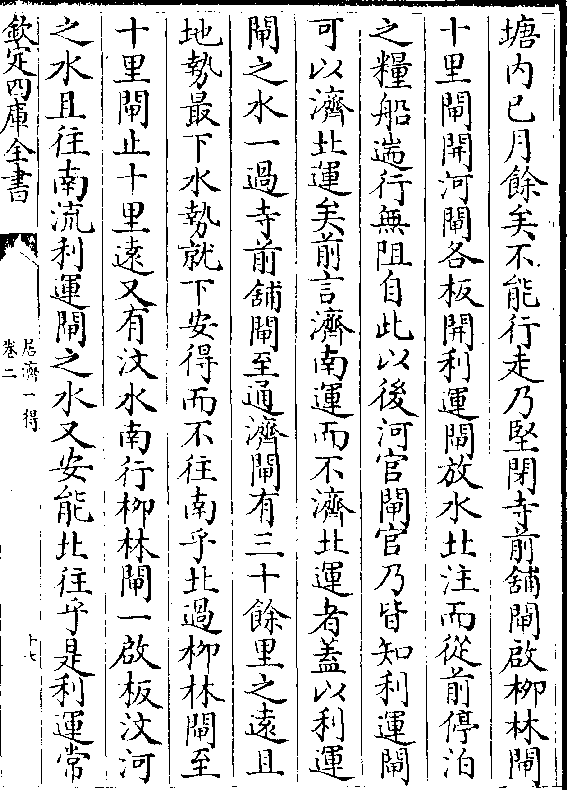 塘内已月餘矣不能行走乃堅閉寺前舖閘啟柳林閘
十里閘開河閘各板開利運閘放水北注而從前停泊
之糧船遄行無阻自此以後河官閘官乃皆知利運閘
可以濟北運矣前言濟南運而不濟北運者蓋以利運
閘之水一過寺前舖閘至通濟閘有三十餘里之遠且
地勢最下水勢就下安得而不往南乎北過柳林閘至
十里閘止十里遠又有汶水南行柳林閘一啟板汶河
之水且往南流利運閘之水又安能北往乎是利運常
欽定四庫全書
居濟一得
卷二
十七